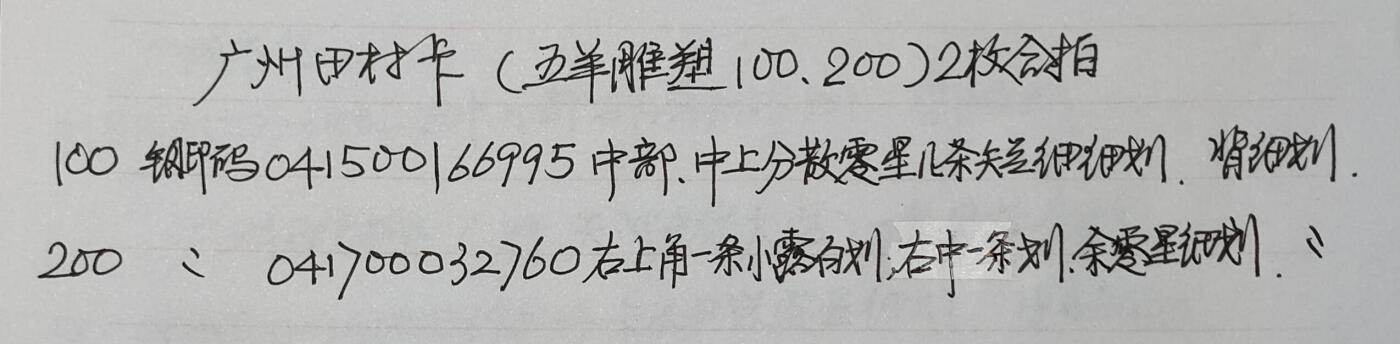 广州田村卡（五羊雕塑100、200）2枚合拍
100 钢印码041500166995中部、中上分散零星几条短细细划、背细划.
200 〃 041700032760右上角一条小露白划,右中一条划.余零星细划、〃